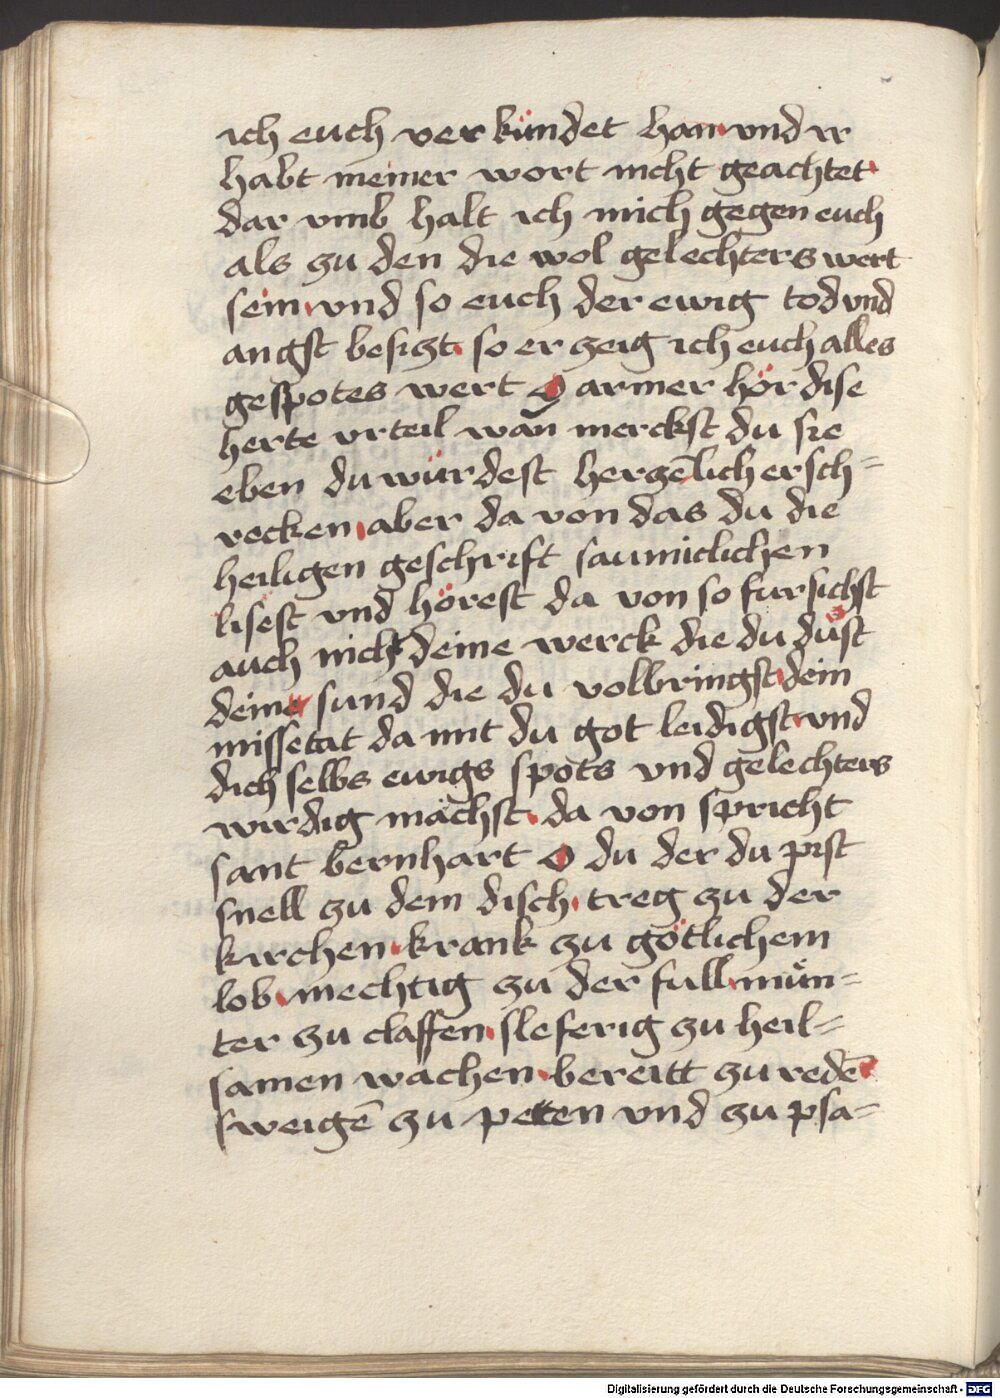 ich euch ver kündet han vnd ir
habt meiner wort nicht geachtet
dar vmb halt ich mich gegen euch
als zu den die wol gelechters wert
sein vnd so euch der ewig tod vnd
angst besizt so er zeig ich euch alles
gespotes wert O armer hör dise
herte vrteil wan̄ merckst du sie
eben du würdest herzē̄lich ersch=
recken aber da von das du die
heiligen geschrift saumiclichen
lisest vnd hörest da von so fursichst
auch nicht deine werck die du düst
deine sund die du volbringst dein
missetat da mit du got leidigst vnd
dich selbs ewigs spots vnd gelechters
wirdig machst da von spricht
sant bernhart O du der du pist
snell zu dem disch treg zu der
kirchen krank zu götlichem
lob mechtig zu der full mün=
ter zu claffen sleferig zu heil=
samen wachen bereitt zu redē
sweigē zu peten vnd zu psa=
Digitalisierung gefördert durch die Deutsche Forschungsgemeinschaft - DFG